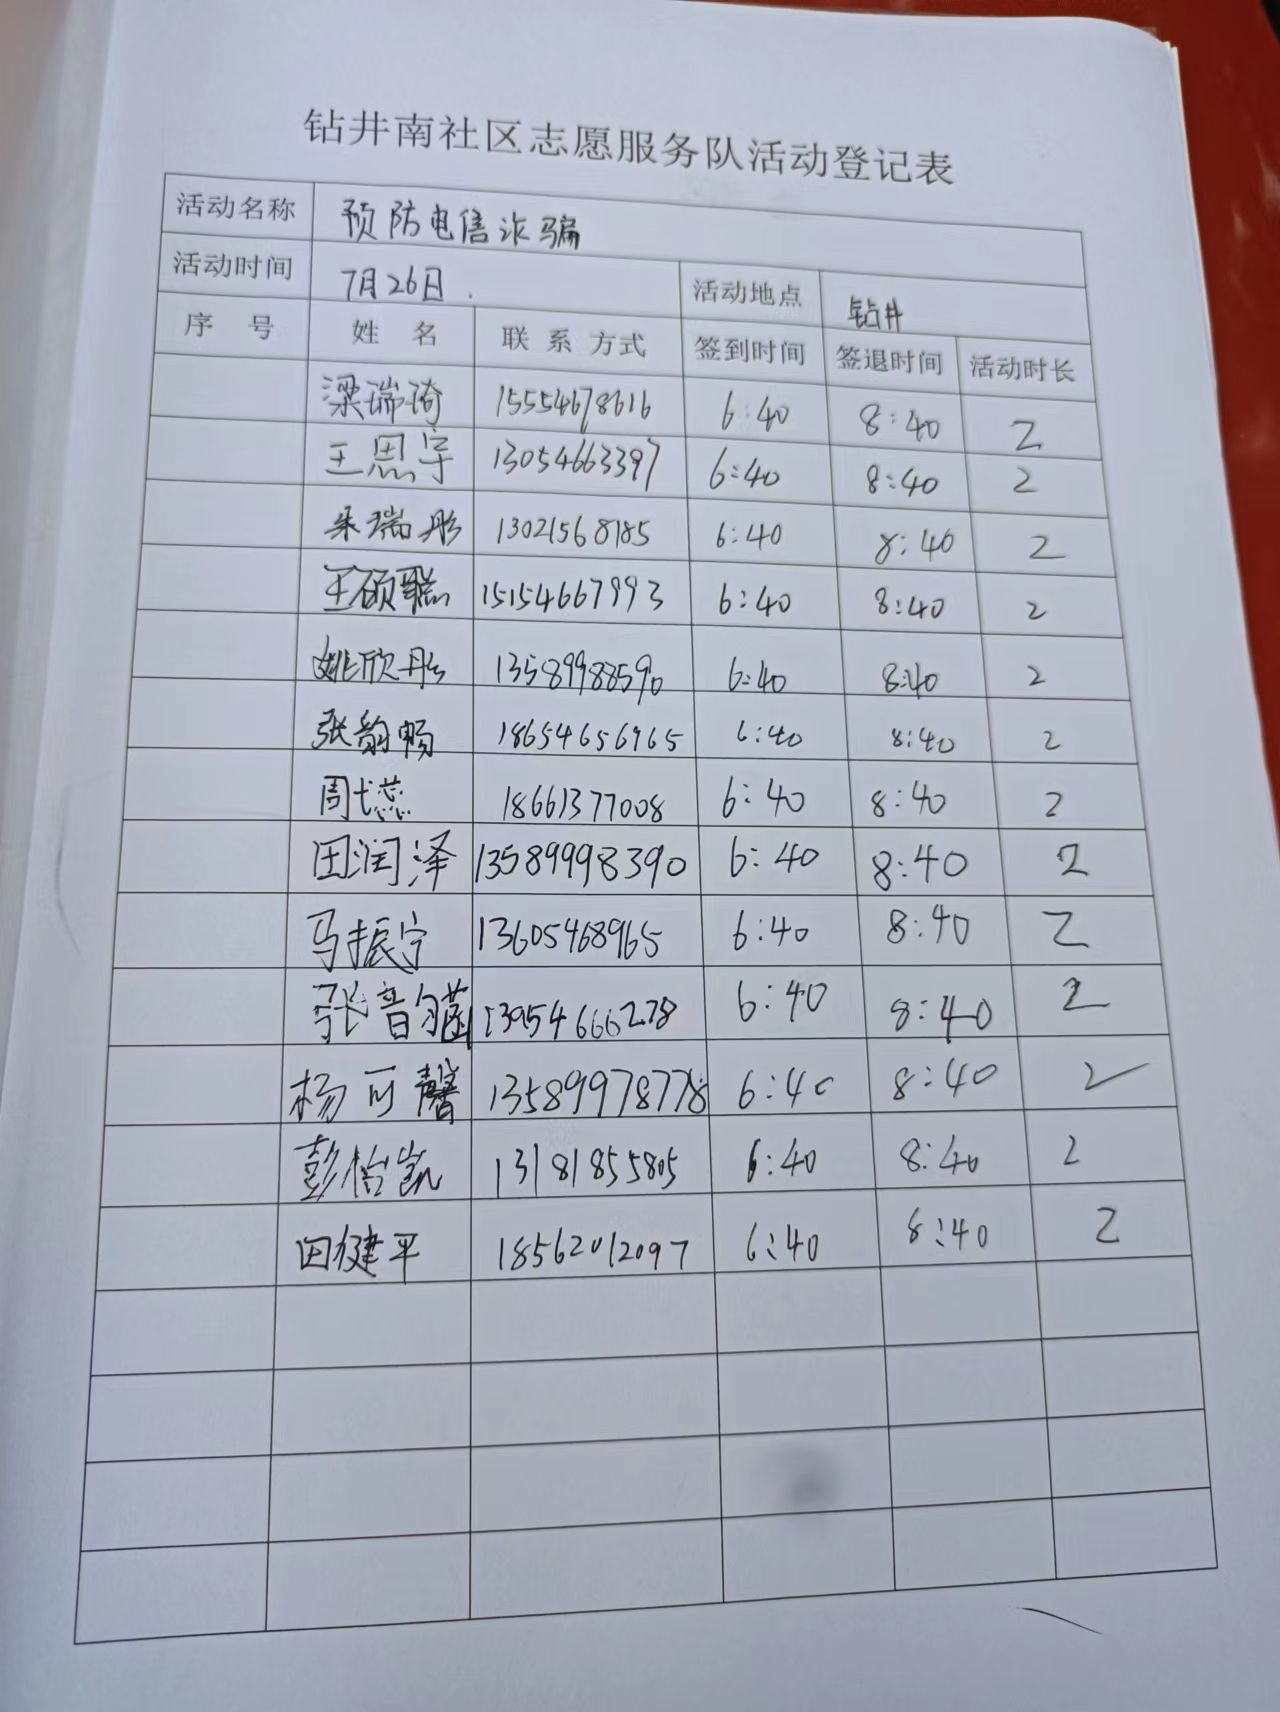 钻井南社区志愿服务队活动登记表
活动名称 预防电信诈骗
活动时间 7月26日. 活动地点 钻井
序 号 姓 名 联系方式 签到时间 签退时间 活动时长
梁瑞琦 15554678616 6:40 8:40 2
王思宇 13054663397 6:40 8:40 2
朱瑞彤 13021568185 6:40 8:40 2
王硕聪 15154667993 6:40 8:40 2
姚欣彤 13589988590 6:40 8:40 2
张韵畅 18654656965 6:40 8:40 2
周弋蕊 18661377008 6:40 8:40 2
田润泽 13589998390 6:40 8:40 2
马振宁 13605468965 6:40 8:40 2
13954666278 6:40 8:40 2
杨可馨 13589978778 6:40 8:40 2
彭怡凯 13181855805 6:40 8:40 2
田健平 18562012097 6:40 8:40 2